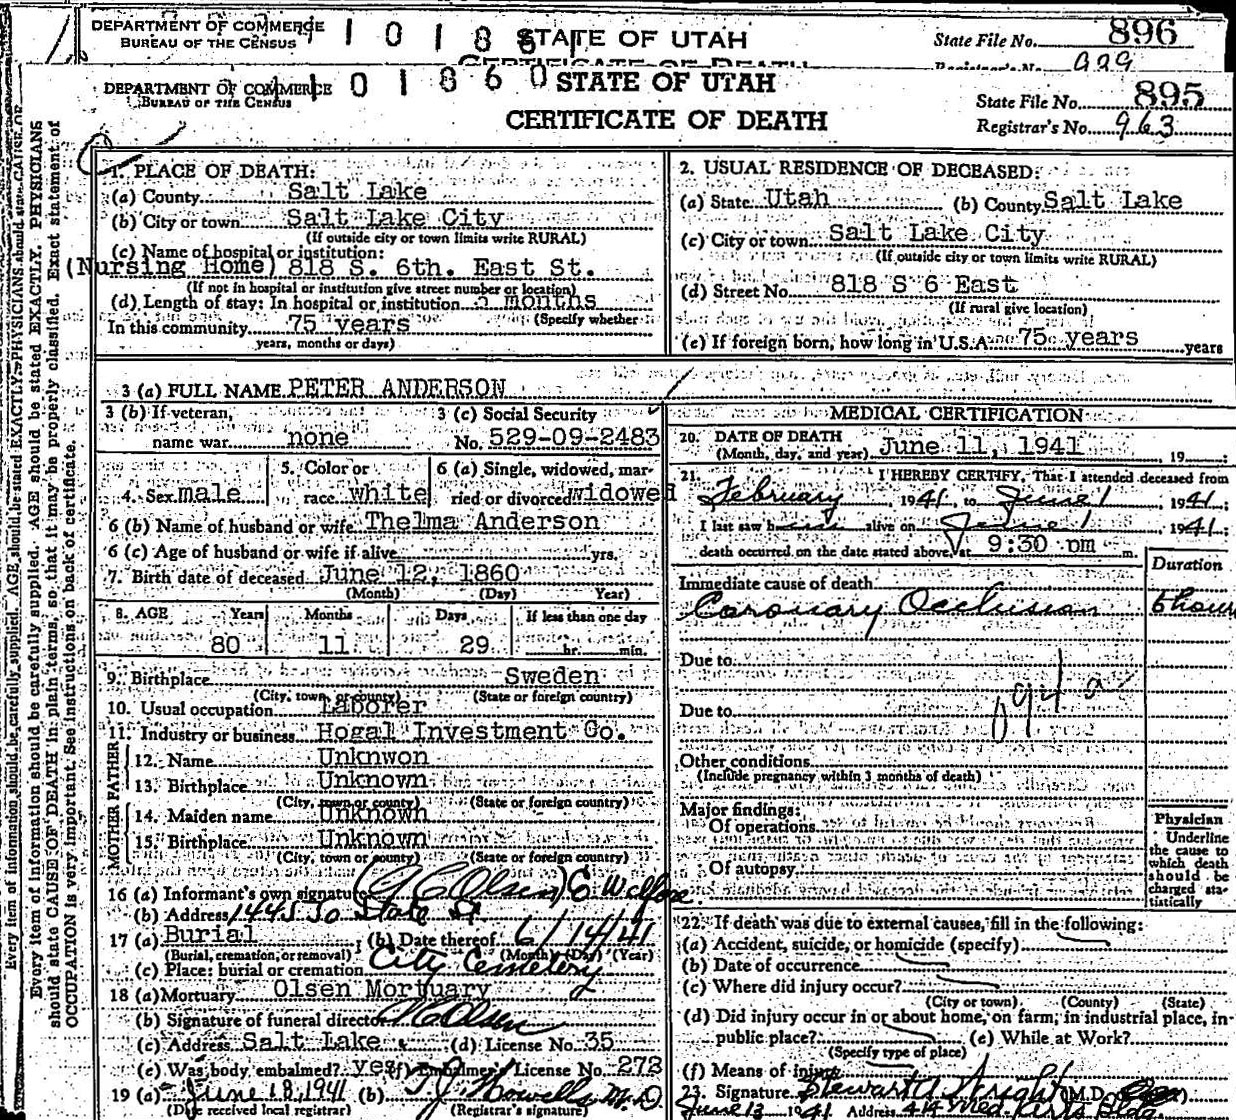 DEPARTMENT OF COMMERCE
BUREAU OF THE CENSUS
1 0 1 8 6 1
STATE OF UTAH
CERTIFICATE OF DEATH
State File No. 896
Registrar's No. 929
DEPARTMENT OF COMMERCE
BUREAU OF THE CENSUS
1 0 1 8 6 0
STATE OF UTAH
CERTIFICATE OF DEATH
State File No. 895
Registrar's No. 963
Every item of information should be carefully supplied. AGE should be stated EXACTLY. PHYSICIANS should state CAUSE OF
Every item of information should be carefully supplied. AGE should be stated EXACTLY. PHYSICIANS
should state CAUSE OF DEATH in plain terms, so that it may be properly classified. Exact statement of
OCCUPATION is very important. See instructions on back of certificate.
1. PLACE OF DEATH:
(a) County Salt Lake
(b) City or town Salt Lake City
(If outside city or town limits write RURAL)
(c) Name of hospital or institution:
(Nursing Home) 818 S. 6th. East St.
(If not in hospital or institution give street number or location)
(d) Length of stay: In hospital or institution months
(Specify whether
In this community 75 years
years, months or days)
2. USUAL RESIDENCE OF DECEASED:
(a) State Utah (b) County Salt Lake
(c) City or town Salt Lake City
(If outside city or town limits write RURAL)
(d) Street No. 818 S 6 East
(If rural give location)
(e) If foreign born, how long in U.S.A. 75 years years
3 (a) FULL NAME PETER ANDERSON
3 (b) If veteran, name war none
3 (c) Social Security No. 529-09-2483
4. Sex male
5. Color or race white
6 (a) Single, widowed, married or divorced widowed
6 (b) Name of husband or wife Thelma Anderson
6 (c) Age of husband or wife if alive yrs.
7. Birth date of deceased June 12, 1860
(Month) (Day) Year)
8. AGE Years Months Days If less than one day
80 11 29 hr. min.
9. Birthplace Sweden
(City, town, or county) (State or foreign country)
10. Usual occupation Laborer
11. Industry or business Hogal Investment Co.
FATHER
12. Name Unknwon
13. Birthplace Unknown
(City, town or county) (State or foreign country)
MOTHER
14. Maiden name Unknown
15. Birthplace Unknown
(City, town or county) (State or foreign country)
16 (a) Informant's own signature (A C Olsen) E Welfare
(b) Address 1445 So State St
17 (a) Burial (b) Date thereof 6/14/41
(Burial, cremation, or removal) (Month) (Day) (Year)
(c) Place: burial or cremation City Cemetery
18 (a) Mortuary Olsen Mortuary
(b) Signature of funeral director A C Olsen
(c) Address Salt Lake (d) License No. 35
(e) Was body embalmed? yes (f) Embalmer's License No. 273
19 (a) June 18, 1941 (b) T J Howells M.D.
(Date received local registrar) (Registrar's signature)
MEDICAL CERTIFICATION
20. DATE OF DEATH
(Month, day, and year) June 11, 1941 19 ;
21. I HEREBY CERTIFY, That I attended deceased from
February 1941, to June 1, 1941;
I last saw him alive on June 1, 1941;
death occurred on the date stated above, at 9:30 pm m.
Duration
Immediate cause of death
Coronary Occlusion 6 hours
Due to
Due to
094 a
Other conditions
(Include pregnancy within 3 months of death)
Major findings:
Of operations
Of autopsy
Physician
Underline
the cause to
which death
should be
charged sta-
tistically
22. If death was due to external causes, fill in the following:
(a) Accident, suicide, or homicide (specify)
(b) Date of occurrence
(c) Where did injury occur?
(City or town) (County) (State)
(d) Did injury occur in or about home, on farm, in industrial place, in
public place? (e) While at Work?
(Specify type of place)
(f) Means of injury
23. Signature Stewart A Wright (M.D.
June 13 1941 Address 414 Med. Arts Bldg